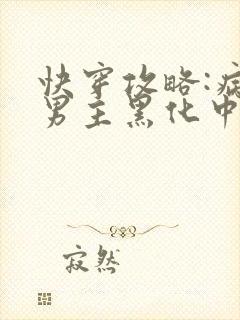 快穿攻略:病
男主黑化中
寂然